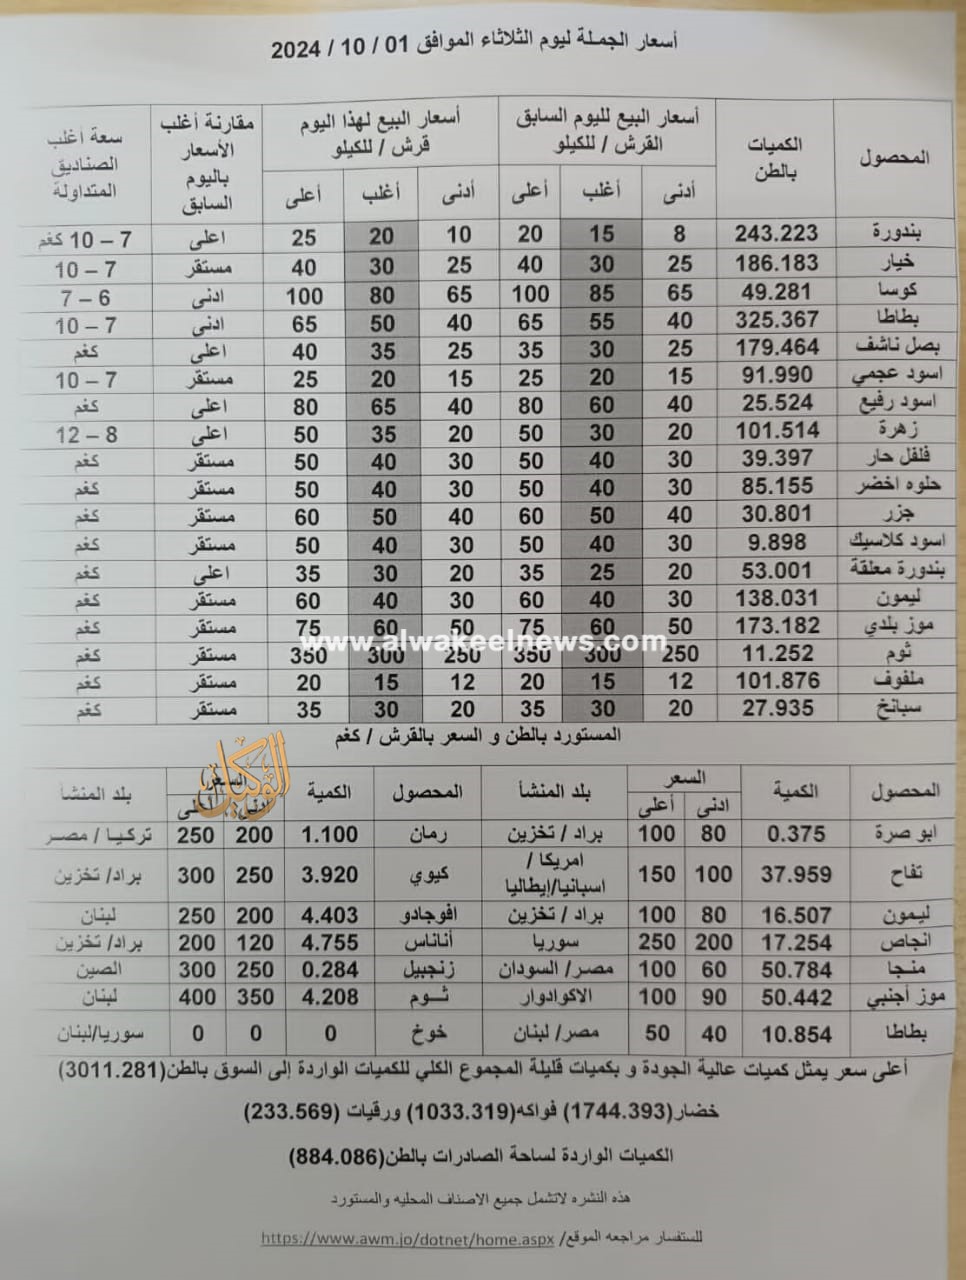 أسعار الجملة ليوم الثلاثاء الموافق 01 / 10 / 2024
المحصول الكميات بالطن أسعار البيع لليوم السابق القرش / للكيلو أسعار البيع لهذا اليوم قرش / للكيلو مقارنة أغلب الأسعار باليوم السابق سعة أغلب الصناديق المتداولة
أدنى أغلب أعلى أدنى أغلب أعلى
بندورة 243.223 8 15 20 10 20 25 اعلى 7 – 10 كغم
خيار 186.183 25 30 40 25 30 40 مستقر 7 – 10
كوسا 49.281 65 85 100 65 80 100 ادنى 6 – 7
بطاطا 325.367 40 55 65 40 50 65 ادنى 7 – 10
بصل ناشف 179.464 25 30 35 25 35 40 اعلى كغم
اسود عجمي 91.990 15 20 25 15 20 25 مستقر 7 – 10
اسود رفيع 25.524 40 60 80 40 65 80 اعلى كغم
زهرة 101.514 20 30 50 20 35 50 اعلى 8 – 12
فلفل حار 39.397 30 40 50 30 40 50 مستقر كغم
حلوه اخضر 85.155 30 40 50 30 40 50 مستقر كغم
جزر 30.801 40 50 60 40 50 60 مستقر كغم
اسود كلاسيك 9.898 30 40 50 30 40 50 مستقر كغم
بندورة معلقة 53.001 20 25 35 20 30 35 اعلى كغم
ليمون 138.031 30 40 60 30 40 60 مستقر كغم
موز بلدي 173.182 50 60 75 50 60 75 مستقر كغم
www.alwakeelnews.com
ثوم 11.252 250 300 350 250 300 350 مستقر كغم
ملفوف 101.876 12 15 20 12 15 20 مستقر كغم
سبانخ 27.935 20 30 35 20 30 35 مستقر كغم
المستورد بالطن و السعر بالقرش / كغم
الوكيل
المحصول الكمية السعر بلد المنشأ المحصول الكمية السعر بلد المنشأ
ادنى أعلى أدنى أعلى
ابو صرة 0.375 80 100 براد / تخزين رمان 1.100 200 250 تركيا / مصر
تفاح 37.959 100 150 امريكا / اسبانيا/إيطاليا كيوي 3.920 250 300 براد/ تخزين
ليمون 16.507 80 100 براد / تخزين افوجادو 4.403 200 250 لبنان
انجاص 17.254 200 250 سوريا أناناس 4.755 120 200 براد/ تخزين
منجا 50.784 60 100 مصر/ السودان زنجبيل 0.284 250 300 الصين
موز أجنبي 50.442 90 100 الاكوادوار ثــوم 4.208 350 400 لبنان
بطاطا 10.854 40 50 مصر/ لبنان خوخ 0 0 0 سوريا/لبنان
أعلى سعر يمثل كميات عالية الجودة و بكميات قليلة المجموع الكلي للكميات الواردة إلى السوق بالطن(3011.281)
خضار(1744.393) فواكه(1033.319) ورقيات (233.569)
الكميات الواردة لساحة الصادرات بالطن(884.086)
هذه النشره لاتشمل جميع الاصناف المحليه والمستورد
للستفسار مراجعه الموقع/ https://www.awm.jo/dotnet/home.aspx